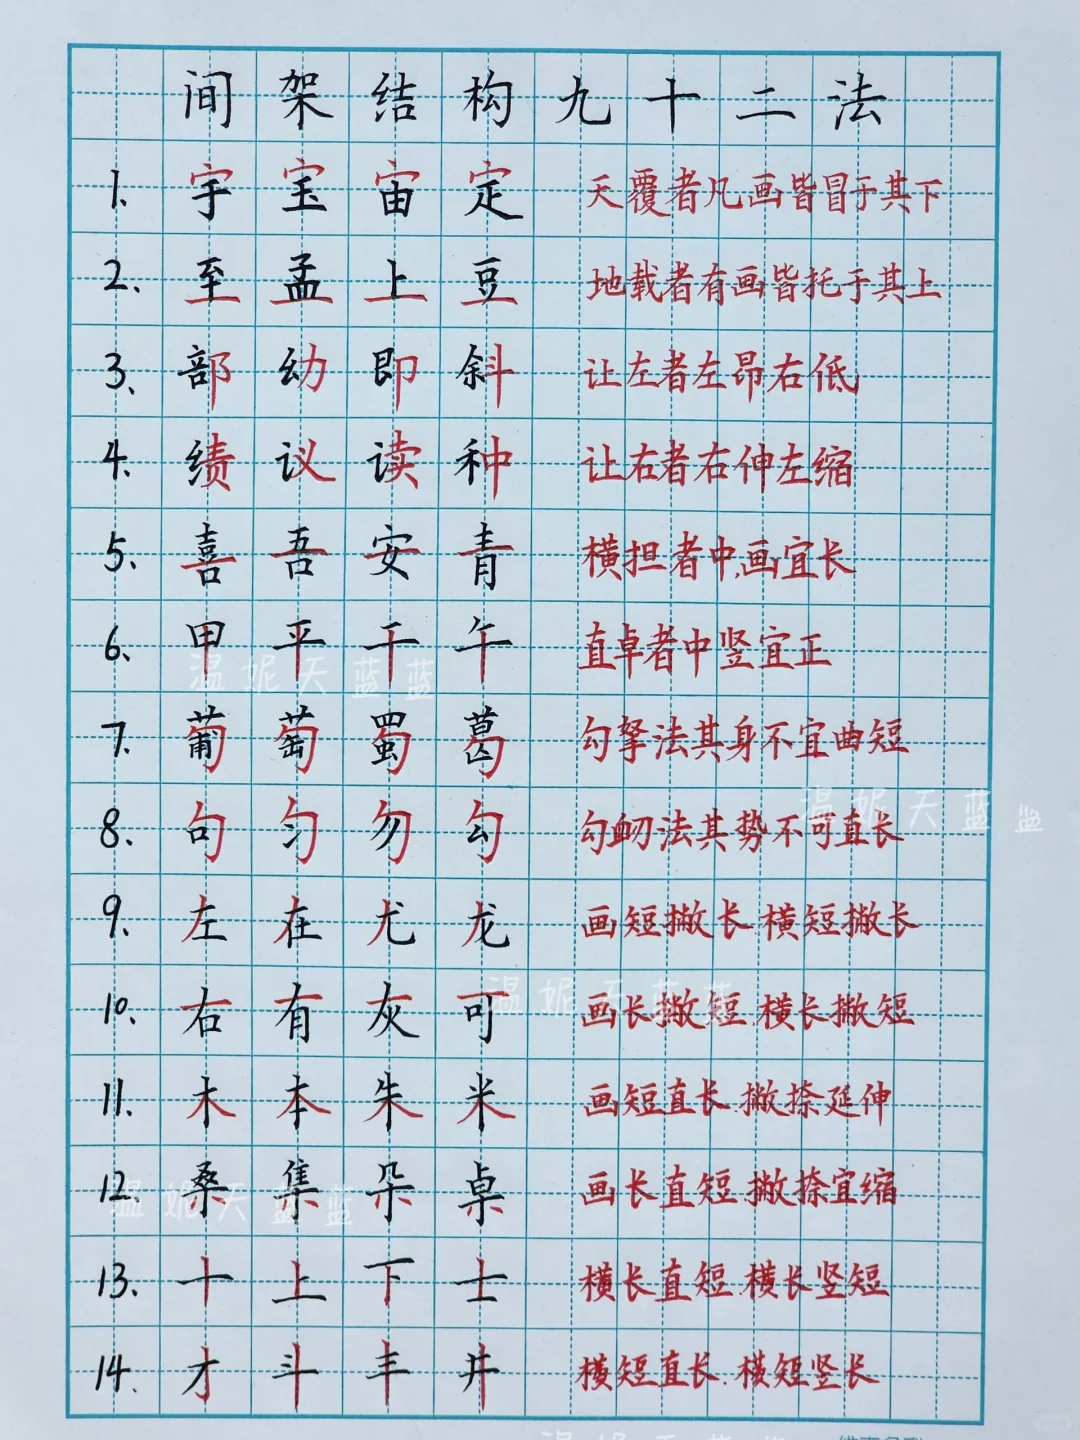 间架结构九十二法
1. 宇宝宙定 天覆者凡画皆冒于其下
2. 至孟上豆 地载者有画皆托于其上
3. 部幼即斜 让左者左昂右低
4. 绩议读种 让右者右伸左缩
5. 喜吾安青 横担者中画宜长
6. 甲平干午 直卓者中竖宜正
7. 葡萄蜀葛 勾拏法其身不宜曲短
8. 句匀勿勾 勾衄法其势不可直长
9. 左在尤龙 画短撇长.横短撇长
10. 右有灰可 画长撇短.横长撇短
11. 木本朱米 画短直长.撇捺延伸
12. 桑集朵桌 画长直短.撇捺宜缩
13. 十上下士 横长直短.横长竖短
14. 才斗丰井 横短直长.横短竖长
温妮天蓝蓝
温妮天蓝蓝
温妮天蓝蓝
温妮天蓝蓝